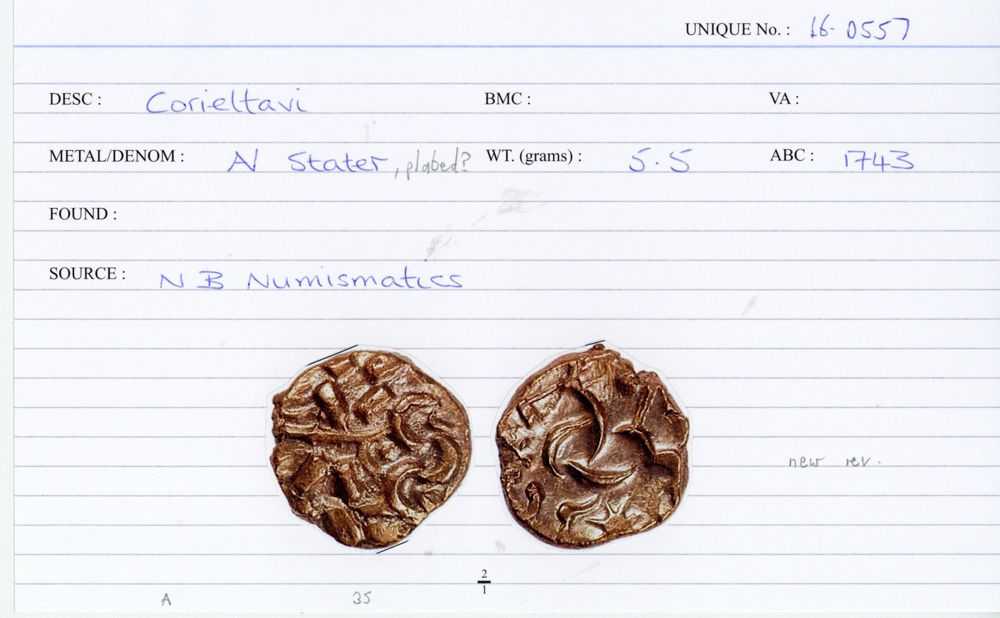 UNIQUE No. : 16-0557
DESC : Corieltavi BMC : VA :
METAL/DENOM : AV Stater, plated? WT. (grams) : 5.5 ABC : 1743
FOUND :
SOURCE : N B Numismatics
new rev.
2
1
A 35